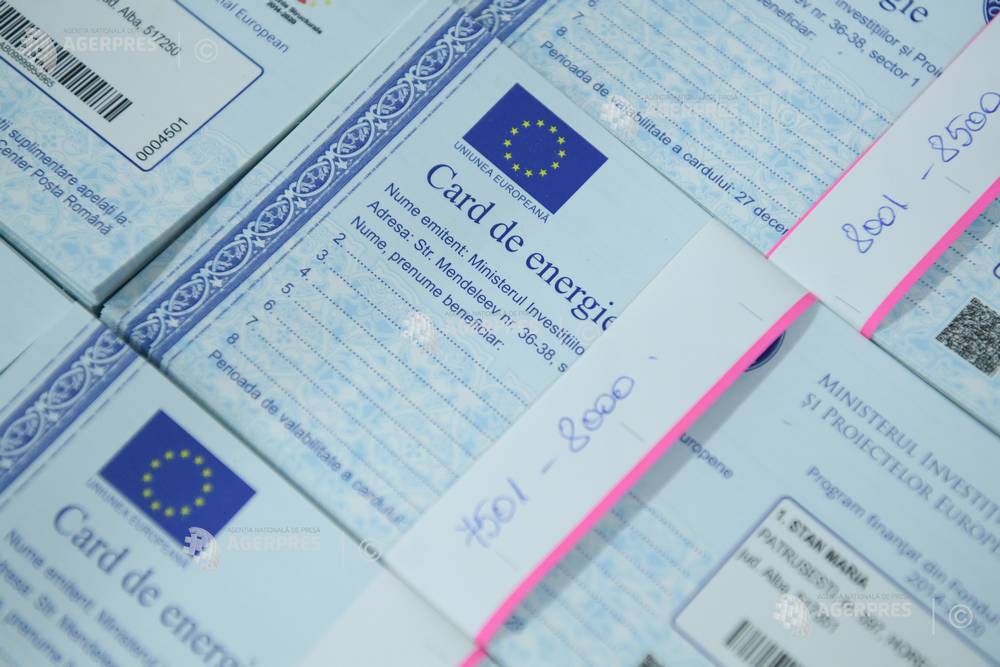 Alba 517250
0004501
ral European
2014-2020
ții suplimentare apelați la:
Center Poșta Română
UNIUNEA EUROPEANĂ
Card de energie
Nume emitent: Ministerul Investițiilor
Adresa: Str. Mendeleev nr. 36-38, s
Nume, prenume beneficiar:
2.
3.
4.
5.
6.
7.
8.
Perioada de valabilitate a cardului
energie
Investițiilor și Proie
nr. 36-38, sector 1
beneficiar:
6.
7.
8.
Perioada de valabilitate a cardului: 27 decem
8001 - 8500
7501 - 8000
UNIUNEA EUROPEANĂ
Card de energie
Nume emitent: Ministerul
Adresa: Str. Mendeleev
prenume beneficiar
europene
MINISTERUL INVESTIȚI
ȘI PROIECTELOR EUROPE
Program finanțat din Fondu
1. STAN MARIA
jud. Alba
AGENȚIA NAȚIONALĂ DE PRESĂ
AGERPRES ©